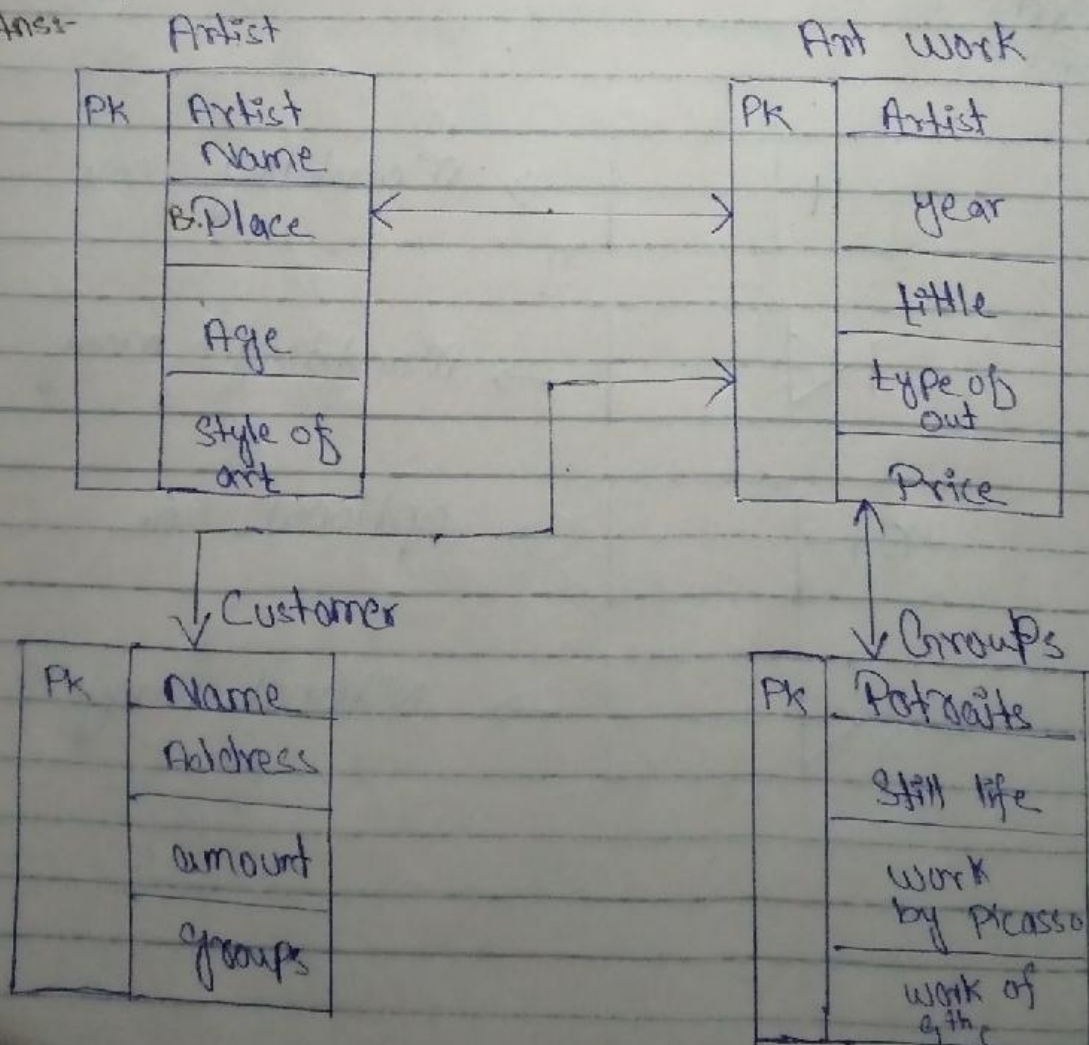 Ans:-
Artist
PK
Artist
Name
B.Place
Age
Style of
art
Art work
PK
Artist
year
tittle
type of
out
Price
Customer
PK
Name
Address
amount
groups
Groups
PK
Potraits
Still life
work
by Picasso
work of